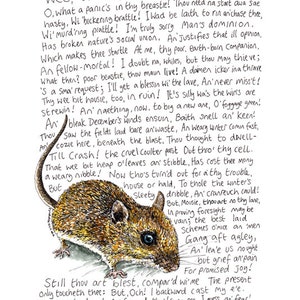 O, what a panic's in thy breastie! Thou need na start awa sae
hasty, Wi' bickering brattle! I wad be laith to rin an' chase thee,
Wi' murd'ring prattle! I'm truly sorry Man's dominion,
Has broken nature's social union, An' justifies that ill opinion,
Which makes thee startle At me, thy poor, Earth-born companion,
An' fellow-mortal! I doubt na, whiles, but thou may thieve;
What then? poor beastie, thou maun live! A daimen icker in a thrave
'S a sma' request; I'll get a blessin wi' the lave, An' never miss't!
Thy wee bit housie, too, in ruin! It's silly wa's the win's are
strewin! An' naething, now, to big a new ane, O' foggage green!
An' bleak December's winds ensuin, Baith snell an' keen!
Thou saw the fields laid bare an' waste, An' weary winter comin fast,
An' cozie here, beneath the blast, Thou thought to dwell-
Till Crash! the cruel coulter past Out thro' thy cell.
That wee bit heap o' leaves an' stibble, Has cost thee mony
a weary nibble! Now thou's turn'd out for a' thy trouble,
But house or hald, To thole the winter's
sleety dribble, An' cranreuch cauld!
But Mousie, thou art no thy lane,
In proving foresight may be
vain; the best laid
Schemes o' mice an' men
Gang aft agley,
An' lea'e us nought
but grief an' pain
For promised joy!
Still thou art blest, compar'd wi' me The present
only toucheth thee: But, Och! I backward cast my e'e,